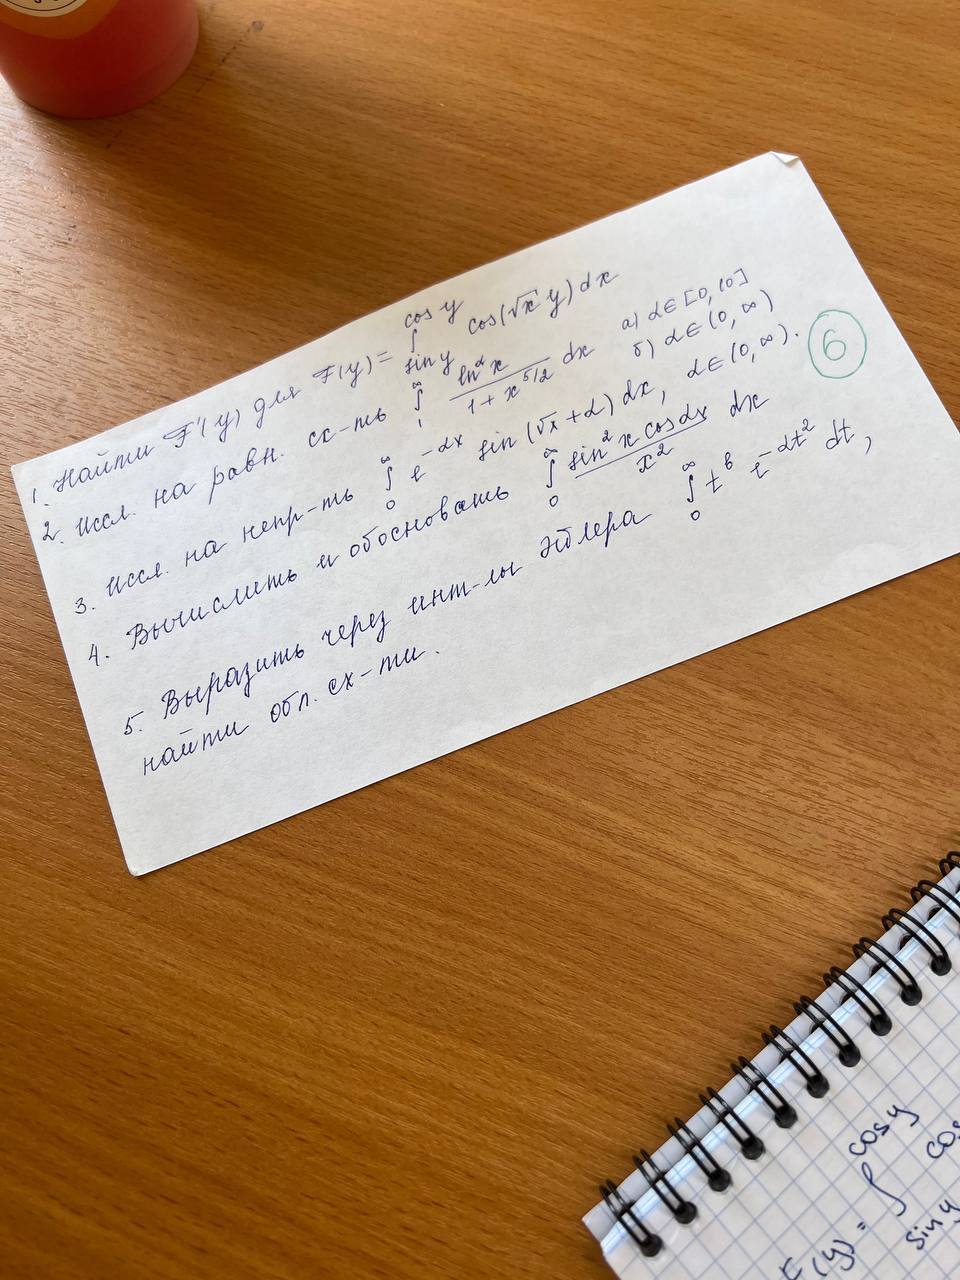 1. Найти F'(y) для F(y) = ∫_{sin y}^{cos y} cos(√x y) dx
2. Иссл. на равн. сх-ть ∫_1^∞ ln^α x / (1 + x^{5/2}) dx а) α ∈ [0, 10]
б) α ∈ (0, ∞)
3. Иссл. на непр-ть ∫_0^∞ e^{-αx} sin(√x + α) dx, α ∈ (0, ∞).
4. Вычислить и обосновать ∫_0^∞ sin² x cos αx / x² dx
5. Выразить через инт-лы Эйлера ∫_0^∞ t^b e^{-αt²} dt,
найти обл. сх-ти.
6
F(y) = ∫_{sin y}^{cos y} cos